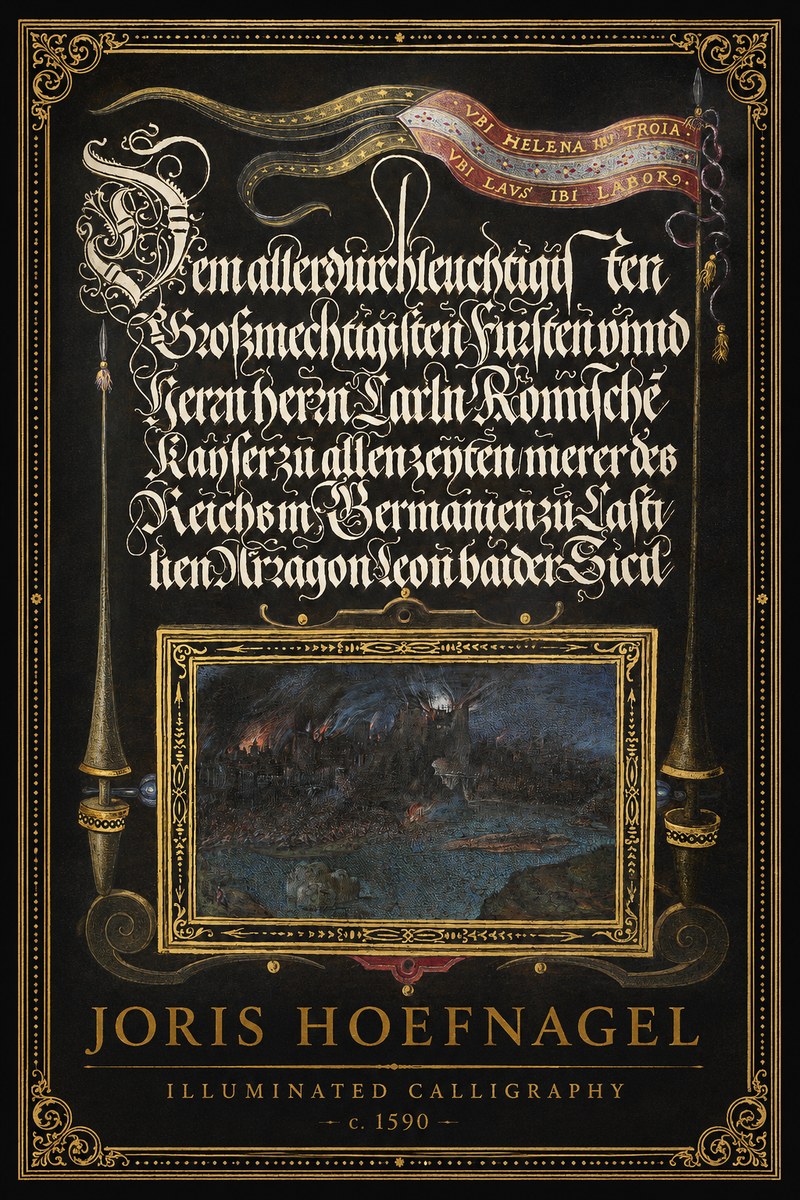 VBI HELENA IBI TROIA
VBI LAVS IBI LABOR
Dem allerdurchleuchtigisten
Großmechtigisten Fursten vnnd
Herrn herrn Carln Römischē
Kayser zu allen zeyten / merer des
Reichs in Germanien zu Casti
lien Arragon Leon baider Sicil
JORIS HOEFNAGEL
ILLUMINATED CALLIGRAPHY
c. 1590